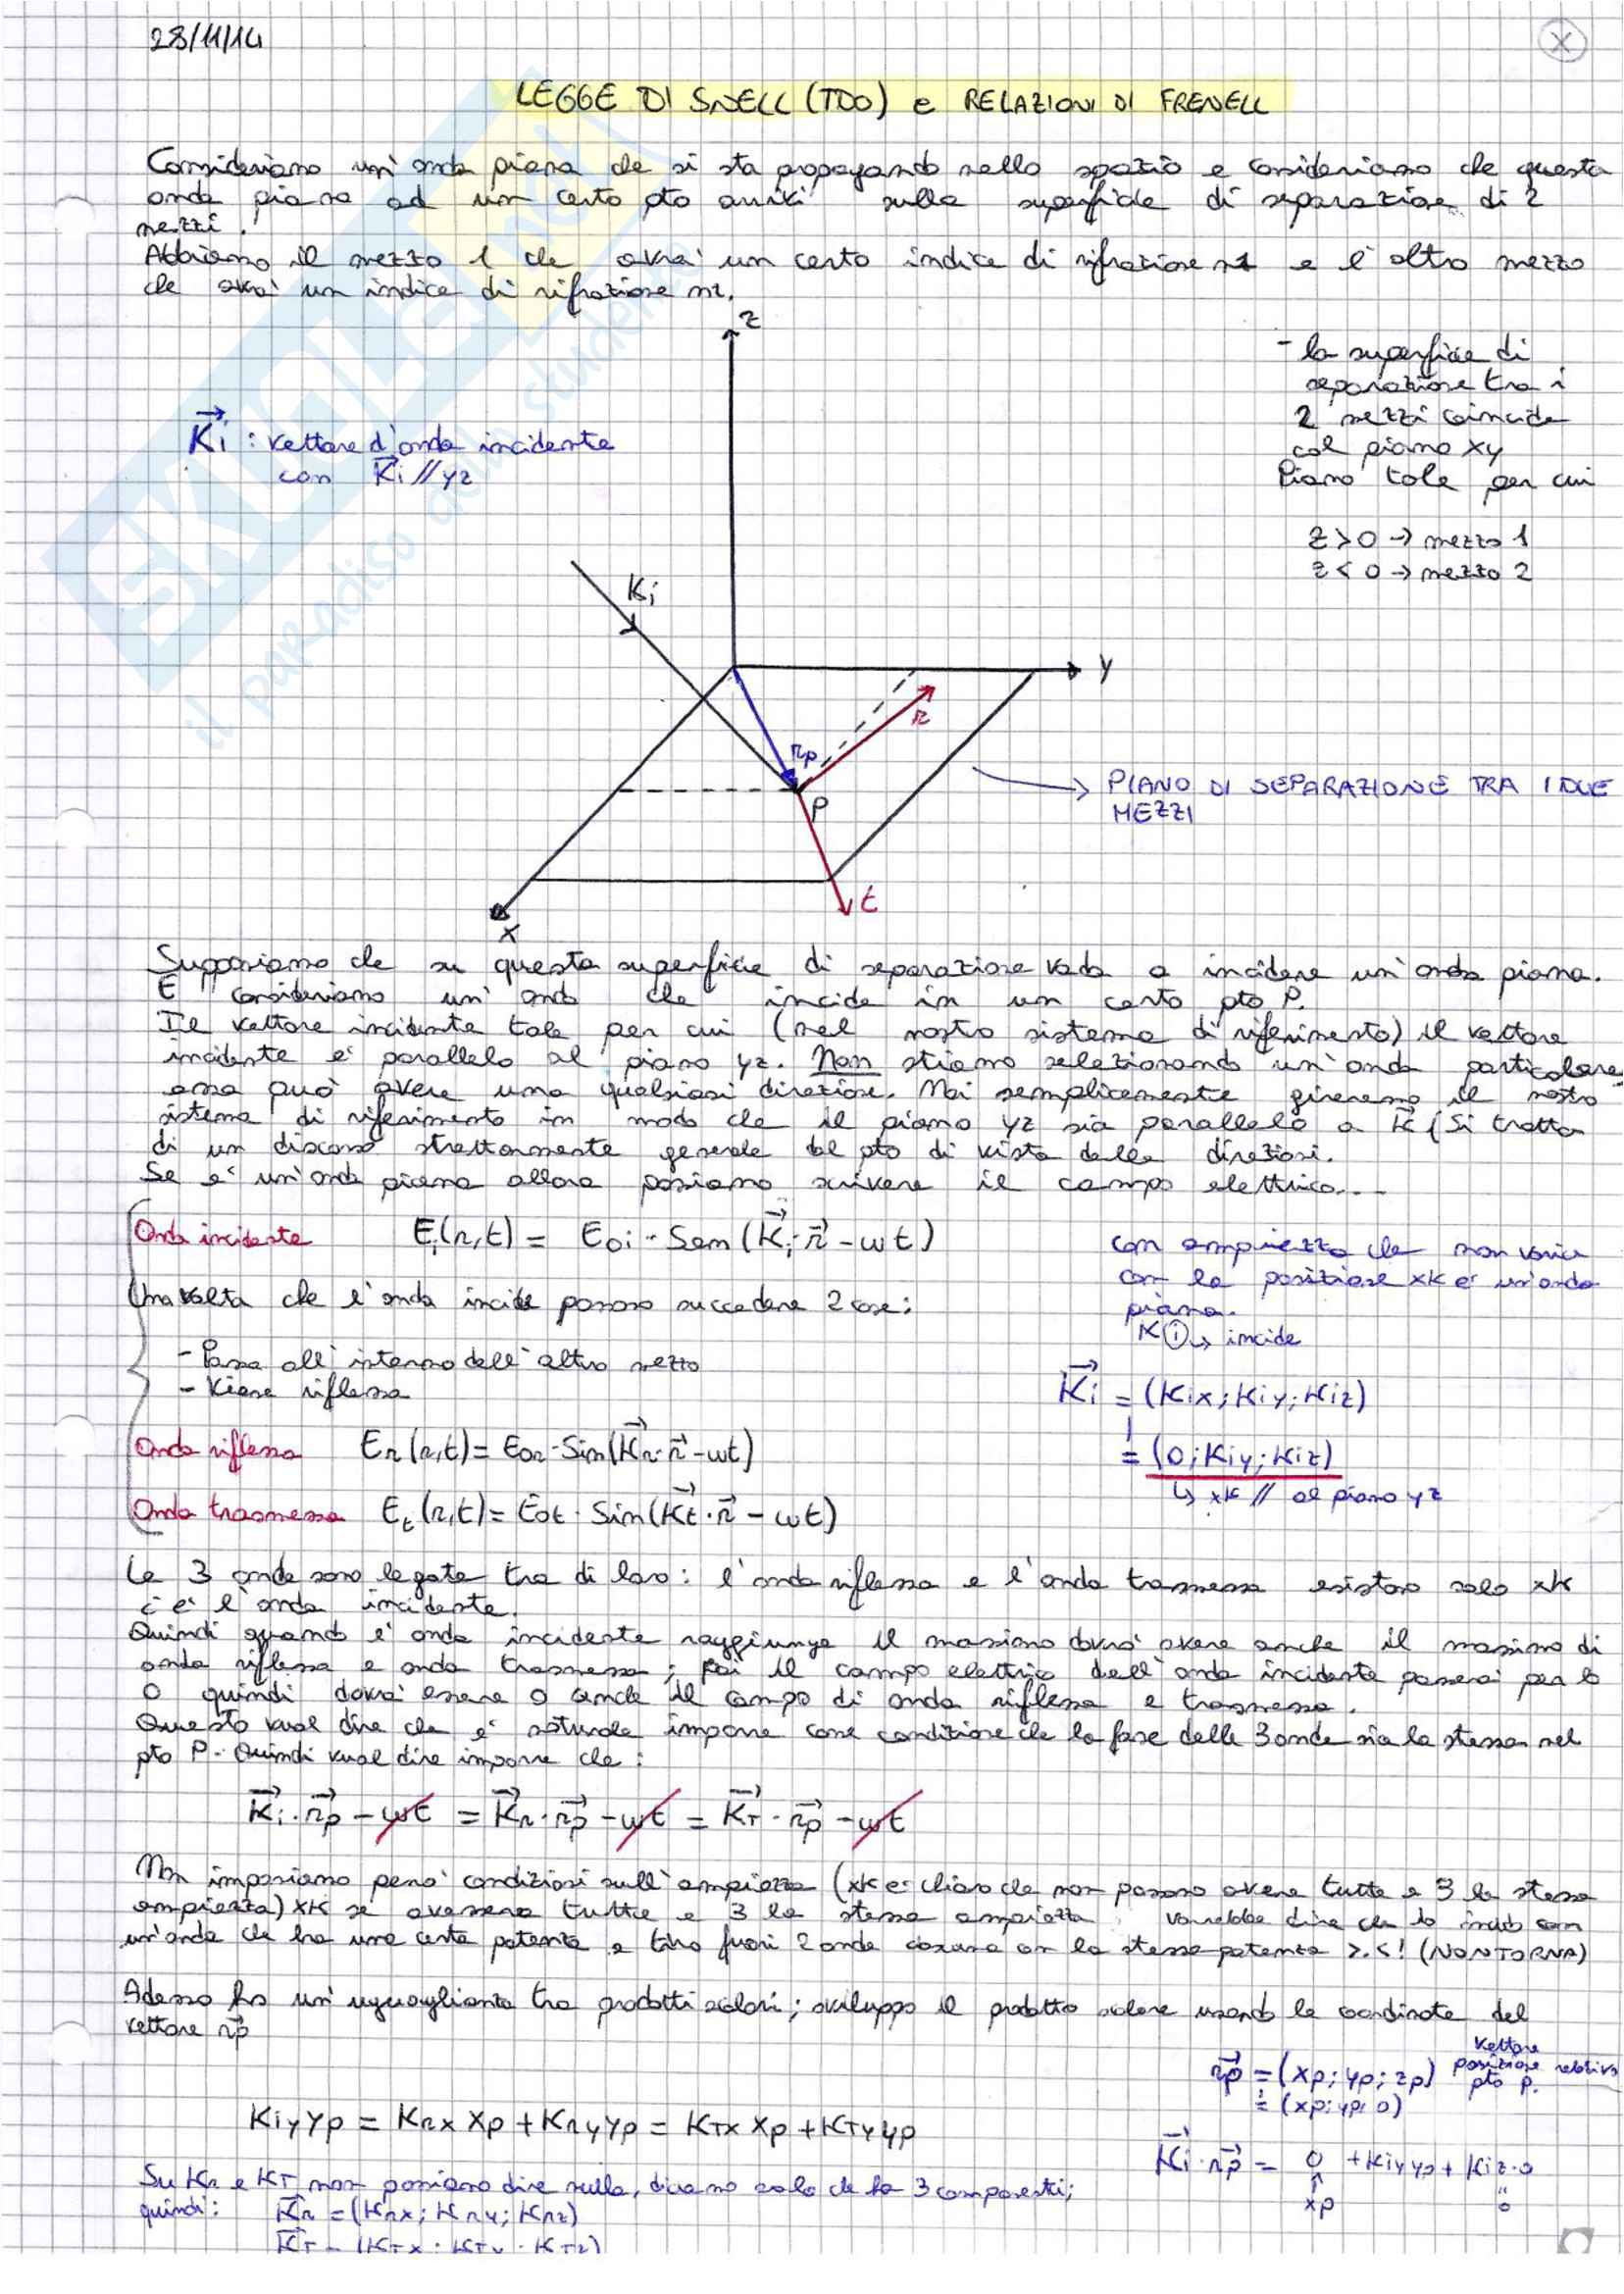 28/11/14
X
LEGGE DI SNELL (TDO) e RELAZIONI DI FRENELL
Consideriamo un'onda piana che si sta propagando nello spazio e consideriamo che questa
onda piana ad un certo pto arrivi sulla superficie di separazione di 2
mezzi.
Abbiamo il mezzo 1 che avra' un certo indice di rifrazione n1 e l'altro mezzo
che avra' un indice di rifrazione n2.
z
- la superficie di
separazione tra i
2 mezzi coincide
col piano xy
Piano tale per cui
z > 0 → mezzo 1
z < 0 → mezzo 2
Ki : vettore d'onda incidente
con Ki // yz
Ki
y
r
rp
P
PIANO DI SEPARAZIONE TRA I DUE
MEZZI
t
x
Supponiamo che su questa superficie di separazione vada a incidere un'onda piana.
E consideriamo un'onda che incide in un certo pto P.
Il vettore incidente tale per cui (nel nostro sistema di riferimento) il vettore
incidente e' parallelo al piano yz. Non stiamo selezionando un'onda particolare,
essa può avere una qualsiasi direzione. Noi semplicemente gireremo il nostro
sistema di riferimento in modo che il piano yz sia parallelo a K (Si tratta
di un discorso strettamente generale dal pto di vista delle direzioni.
Se e' un'onda piana allora possiamo scrivere il campo elettrico...
Onda incidente Ei(r,t) = Eoi · Sen (Ki·r - ωt)
con ampiezza che non varia
con la posizione xk e' un'onda
piana.
K i ↳ incide
Una volta che l'onda incide possono succedere 2 cose:
- Passa all'interno dell'altro mezzo
- Viene riflessa
Ki = (Kix; Kiy; Kiz)
= (0; Kiy; Kiz)
↳ xk // al piano yz
Onda riflessa Er(r,t) = Eor · Sin(Kr·r - ωt)
Onda trasmessa Et(r,t) = Eot · Sin(Kt·r - ωt)
Le 3 onde sono legate tra di loro: l'onda riflessa e l'onda trasmessa esistono solo xk
c'e' l'onda incidente.
Quindi quando l'onda incidente raggiunge il massimo dovra' avere anche il massimo di
onda riflessa e onda trasmessa; poi il campo elettrico dell'onda incidente passera' per lo
0 quindi dovra' essere 0 anche il campo di onda riflessa e trasmessa.
Questo vuol dire che e' naturale imporre come condizione che la fase delle 3 onde sia la stessa nel
pto P. Quindi vuol dire imporre che:
Ki · rp - ωt = Kr · rp - ωt = KT · rp - ωt
Non imponiamo pero' condizioni sull'ampiezza (xk e' chiaro che non possono avere tutte e 3 la stessa
ampiezza) xk se avessero tutte e 3 la stessa ampiezza vorrebbe dire che io incido con
un'onda che ha una certa potenza e tiro fuori 2 onde ciascuna con la stessa potenza >.<! (NON TORNA)
Adesso ho un'uguaglianza tra prodotti scalari; sviluppo il prodotto scalare usando le coordinate del
vettore rp
rp = (xp; yp; zp) vettore posizione relativo pto P.
= (xp; yp; 0)
Kiy yp = Krx xp + Kry yp = KTx xp + KTy yp
Ki · rp = 0 + Kiy yp + Kiz · 0
xp
0
Su Kr e KT non possiamo dire nulla, diciamo solo che ha 3 componenti;
quindi: Kr = (Krx; Kry; Krz)
KT = (KTx; KTy; KTz)
SKUOLA.net
il paradiso dello studente